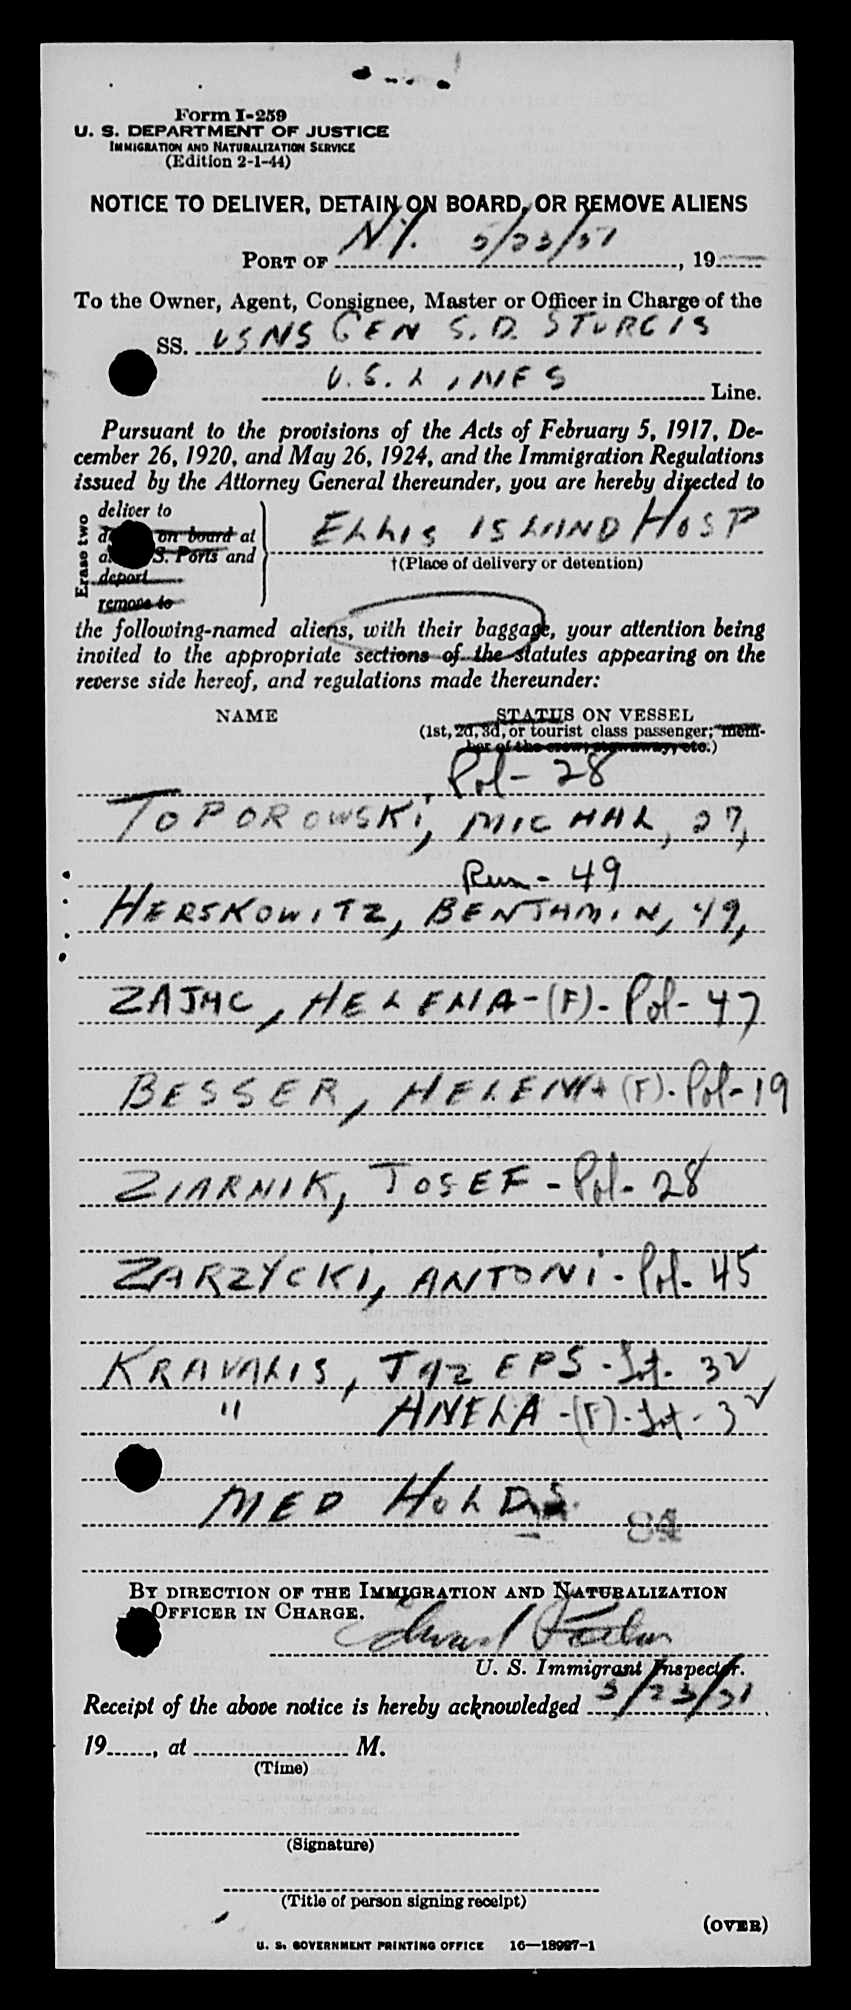 Form I-259
U. S. DEPARTMENT OF JUSTICE
IMMIGRATION AND NATURALIZATION SERVICE
(Edition 2-1-44)
NOTICE TO DELIVER, DETAIN ON BOARD, OR REMOVE ALIENS
PORT OF N.Y. 5/23/51, 19
To the Owner, Agent, Consignee, Master or Officer in Charge of the
SS. USNS GEN S. D. STURGIS
U. S. LINES Line.
Pursuant to the provisions of the Acts of February 5, 1917, De-
cember 26, 1920, and May 26, 1924, and the Immigration Regulations
issued by the Attorney General thereunder, you are hereby directed to
Erase two
deliver to
on board at
S. Ports and
deport
remove to
ELLIS ISLAND HOSP
†(Place of delivery or detention)
the following-named aliens, with their baggage, your attention being
invited to the appropriate sections of the statutes appearing on the
reverse side hereof, and regulations made thereunder:
NAME STATUS ON VESSEL
(1st, 2d, 3d, or tourist class passenger; mem-
ber of the crew, stowaway, etc.)
Pol - 28
TOPOROWSKI, MICHAL, 27,
Rum - 49
HERSKOWITZ, BENJAMIN, 49,
ZAJAC, HELENA - (F) - Pol - 47
BESSER, HELENA (F) - Pol - 19
ZIARNIK, JOSEF - Pol - 28
ZARZYCKI, ANTONI - Pol - 45
KRAVALIS, JAZEPS - Lat - 32
" ANELA - (F) - Lat - 32
MED HOLDS
84
BY DIRECTION OF THE IMMIGRATION AND NATURALIZATION
OFFICER IN CHARGE.
Edward
U. S. Immigrant Inspector.
Receipt of the above notice is hereby acknowledged 5/23/51,
19, at M.
(Time)
(Signature)
(Title of person signing receipt)
(OVER)
U. S. GOVERNMENT PRINTING OFFICE 16—18987-1